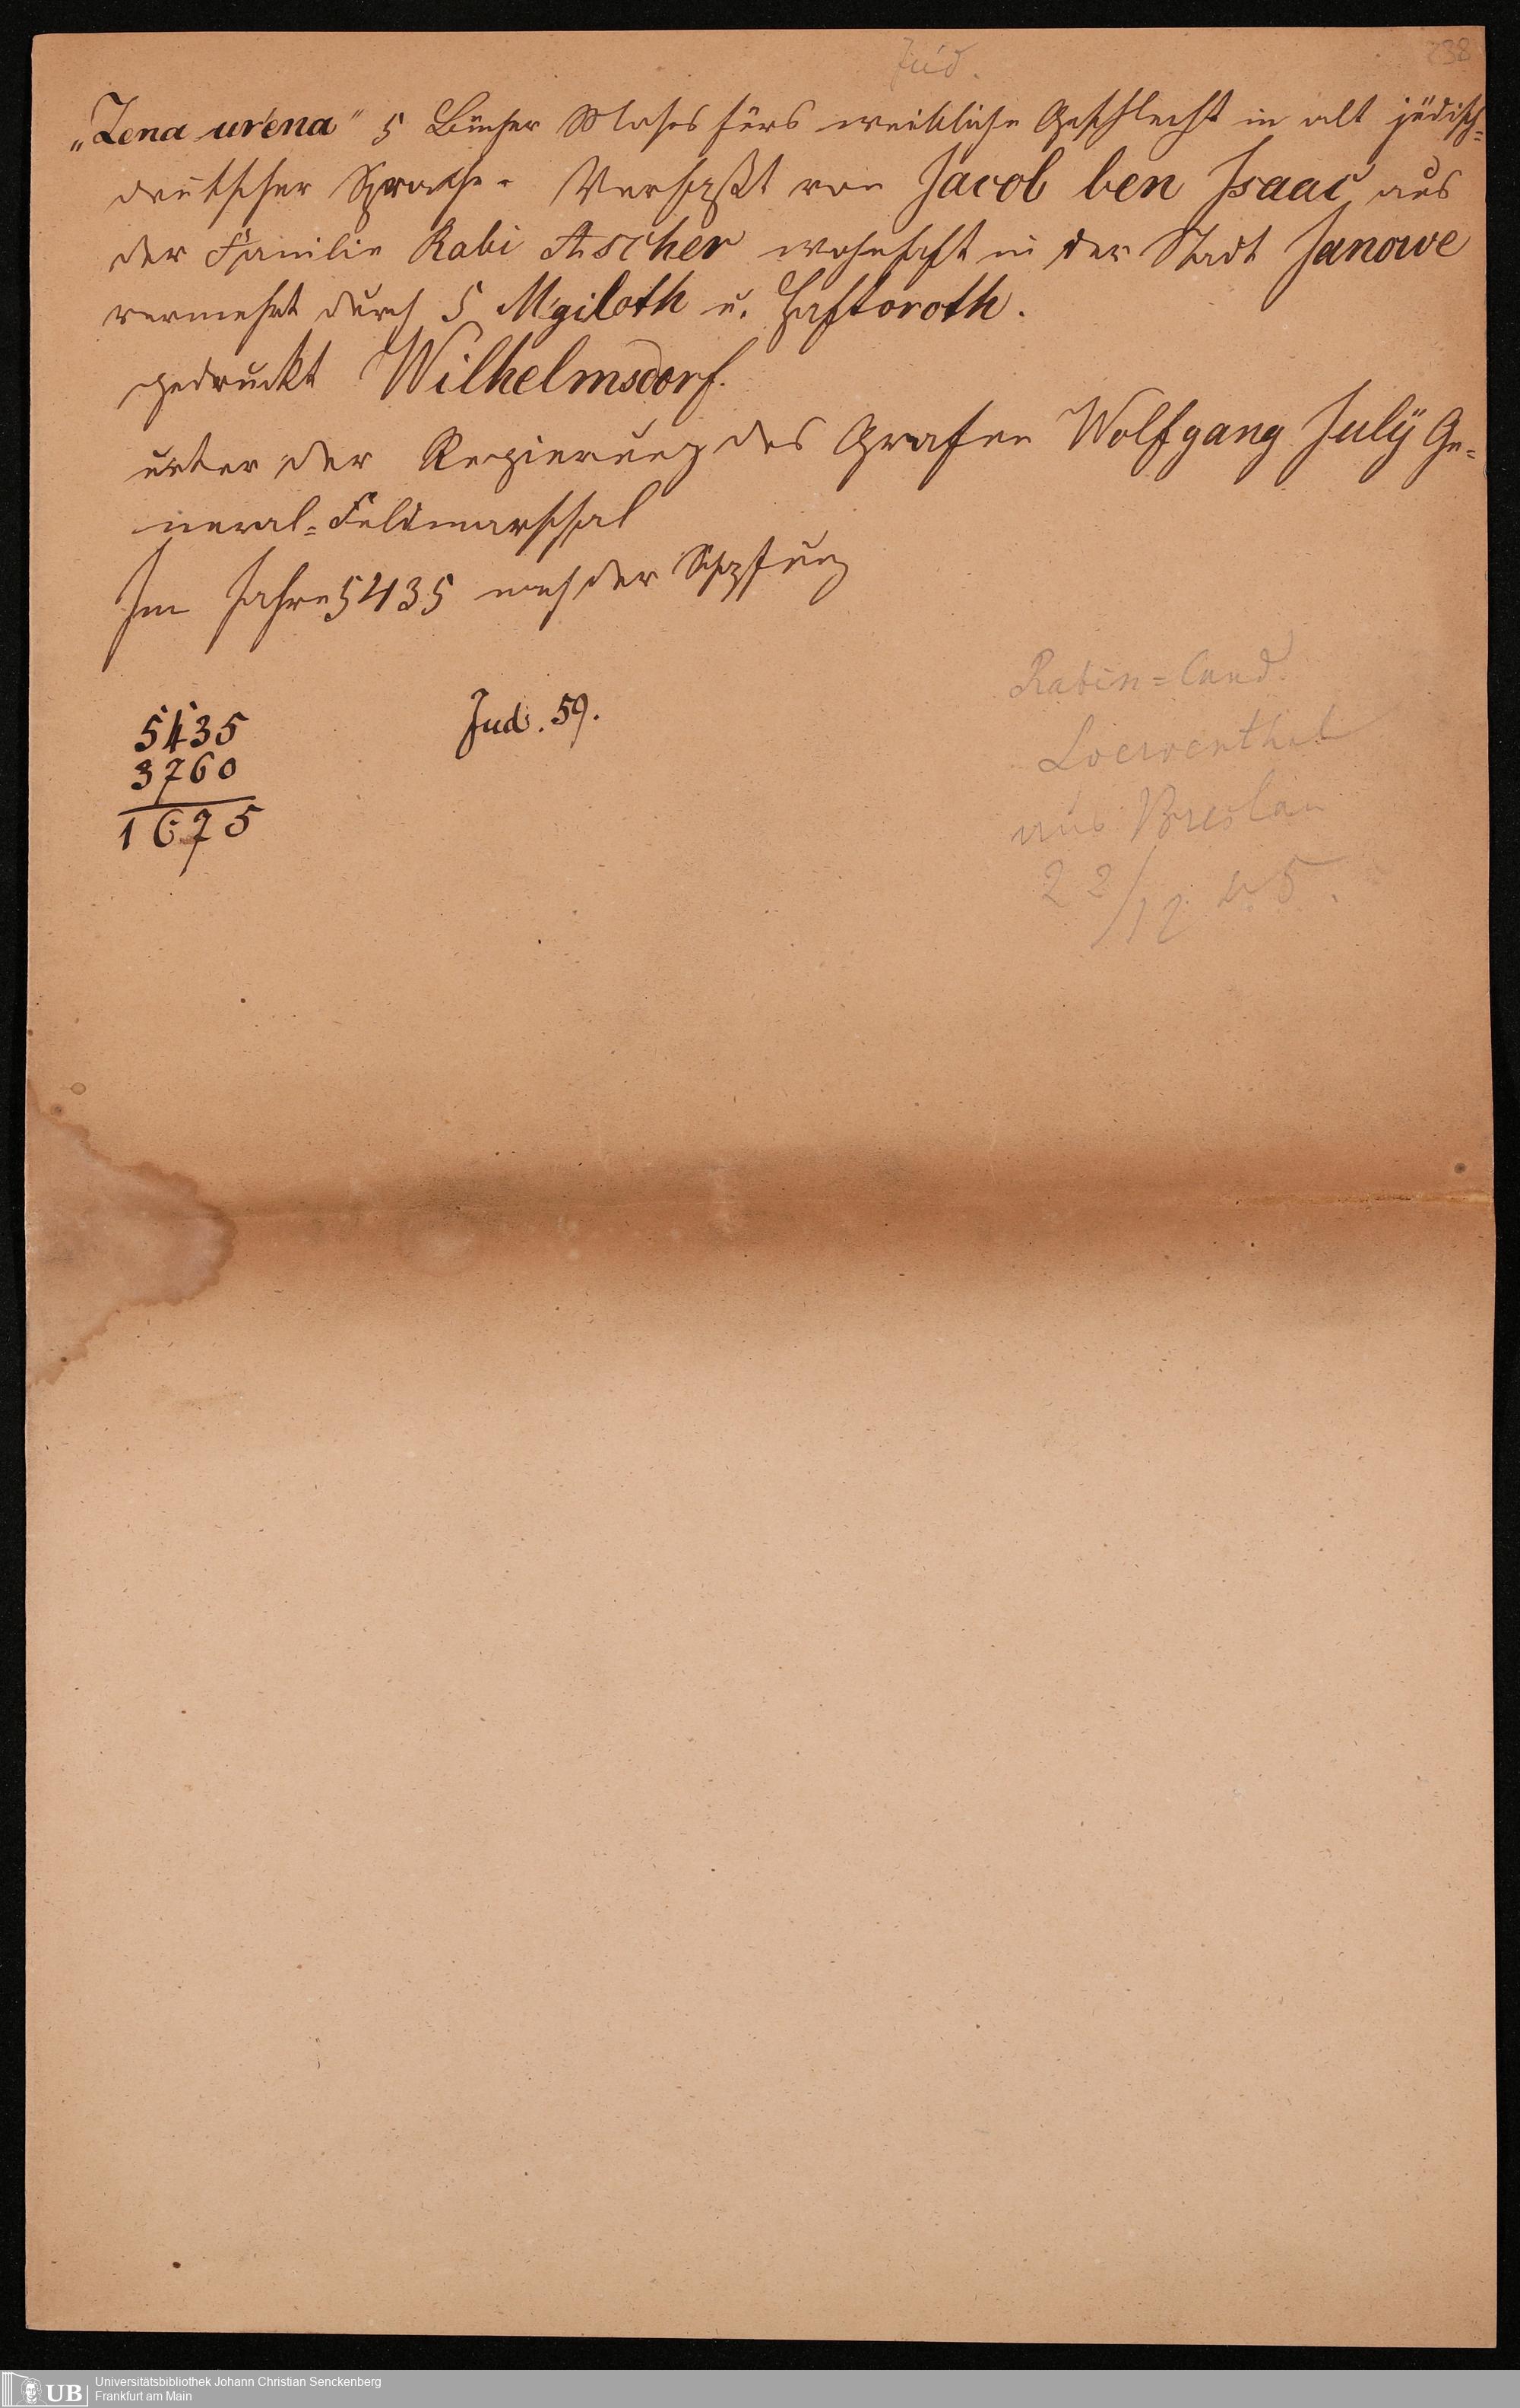 Jüd.
238
„Zena urena" 5 Bücher Moses fürs weibliche Geschlecht in alt jüdisch=
deutscher Sprache. Verfaßt von Jacob ben Isaac aus
der Familie Rabi Ascher wohnhaft in der Stadt Janowe
vermehrt durch 5 Mgiloth u. Haftoroth.
gedruckt Wilhelmsdorf.
unter der Regierung des Grafen Wolfgang Julÿ Ge=
neral=Feldmarschal
Im Jahre 5435 nach der Schöpfung
5435
3760
1675
Jud. 59.
Rabin=Cand.
Loewenthal
aus Breslau
22/12
Universitätsbibliothek Johann Christian Senckenberg
Frankfurt am Main
UB